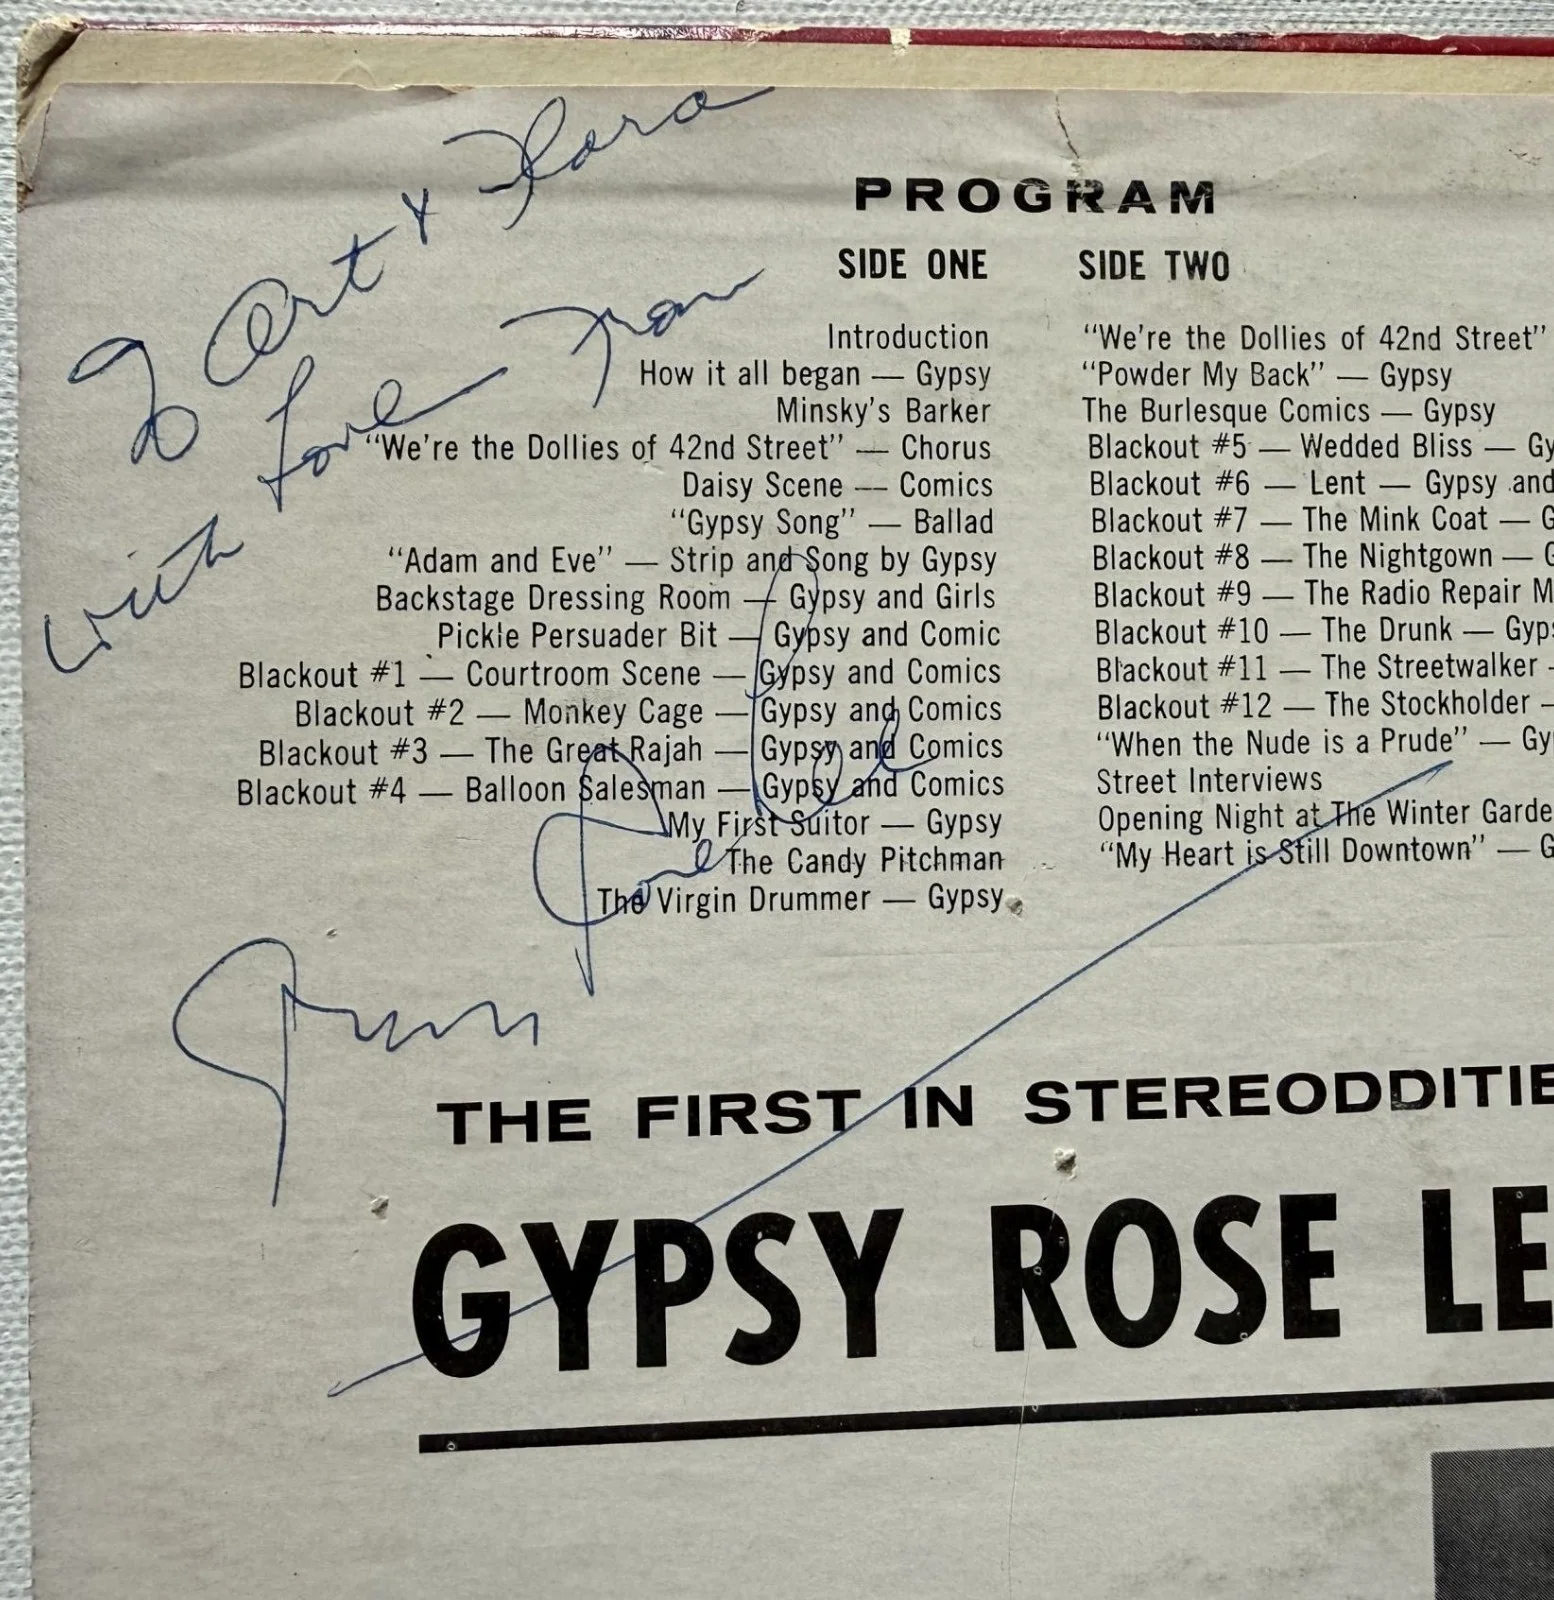 To Art & Flora
with Love From
Gypsy Rose Lee
PROGRAM
SIDE ONE
Introduction
How it all began — Gypsy
Minsky's Barker
"We're the Dollies of 42nd Street" — Chorus
Daisy Scene — Comics
"Gypsy Song" — Ballad
"Adam and Eve" — Strip and Song by Gypsy
Backstage Dressing Room — Gypsy and Girls
Pickle Persuader Bit — Gypsy and Comic
Blackout #1 — Courtroom Scene — Gypsy and Comics
Blackout #2 — Monkey Cage — Gypsy and Comics
Blackout #3 — The Great Rajah — Gypsy and Comics
Blackout #4 — Balloon Salesman — Gypsy and Comics
My First Suitor — Gypsy
The Candy Pitchman
The Virgin Drummer — Gypsy
SIDE TWO
"We're the Dollies of 42nd Street"
"Powder My Back" — Gypsy
The Burlesque Comics — Gypsy
Blackout #5 — Wedded Bliss — Gy
Blackout #6 — Lent — Gypsy and
Blackout #7 — The Mink Coat — G
Blackout #8 — The Nightgown — G
Blackout #9 — The Radio Repair M
Blackout #10 — The Drunk — Gyps
Blackout #11 — The Streetwalker —
Blackout #12 — The Stockholder —
"When the Nude is a Prude" — Gy
Street Interviews
Opening Night at The Winter Garde
"My Heart is Still Downtown" — G
THE FIRST IN STEREODDITIE
GYPSY ROSE LE